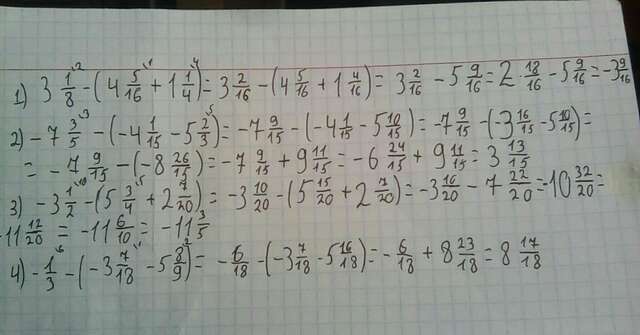 1) 3 1/8 - (4 5/16 + 1 1/4) = 3 2/16 - (4 5/16 + 1 4/16) = 3 2/16 - 5 9/16 = 2 · 18/16 - 5 9/16 = -3 9/16
2) - 7 3/5 - (-4 1/15 - 5 2/3) = -7 9/15 - (-4 1/15 - 5 10/15) = -7 9/15 - (-3 16/15 - 5 10/15) =
= -7 9/15 - (-8 26/15) = -7 9/15 + 9 11/15 = -6 24/15 + 9 11/15 = 3 13/15
3) -3 1/2 - (5 3/4 + 2 7/20) = -3 10/20 - (5 15/20 + 2 7/20) = -3 16/20 - 7 22/20 = -10 32/20 =
-11 12/20 = -11 6/10 = -11 3/5
4) - 1/3 - (-3 7/18 - 5 8/9) = - 6/18 - (-3 7/18 - 5 16/18) = - 6/18 + 8 23/18 = 8 17/18